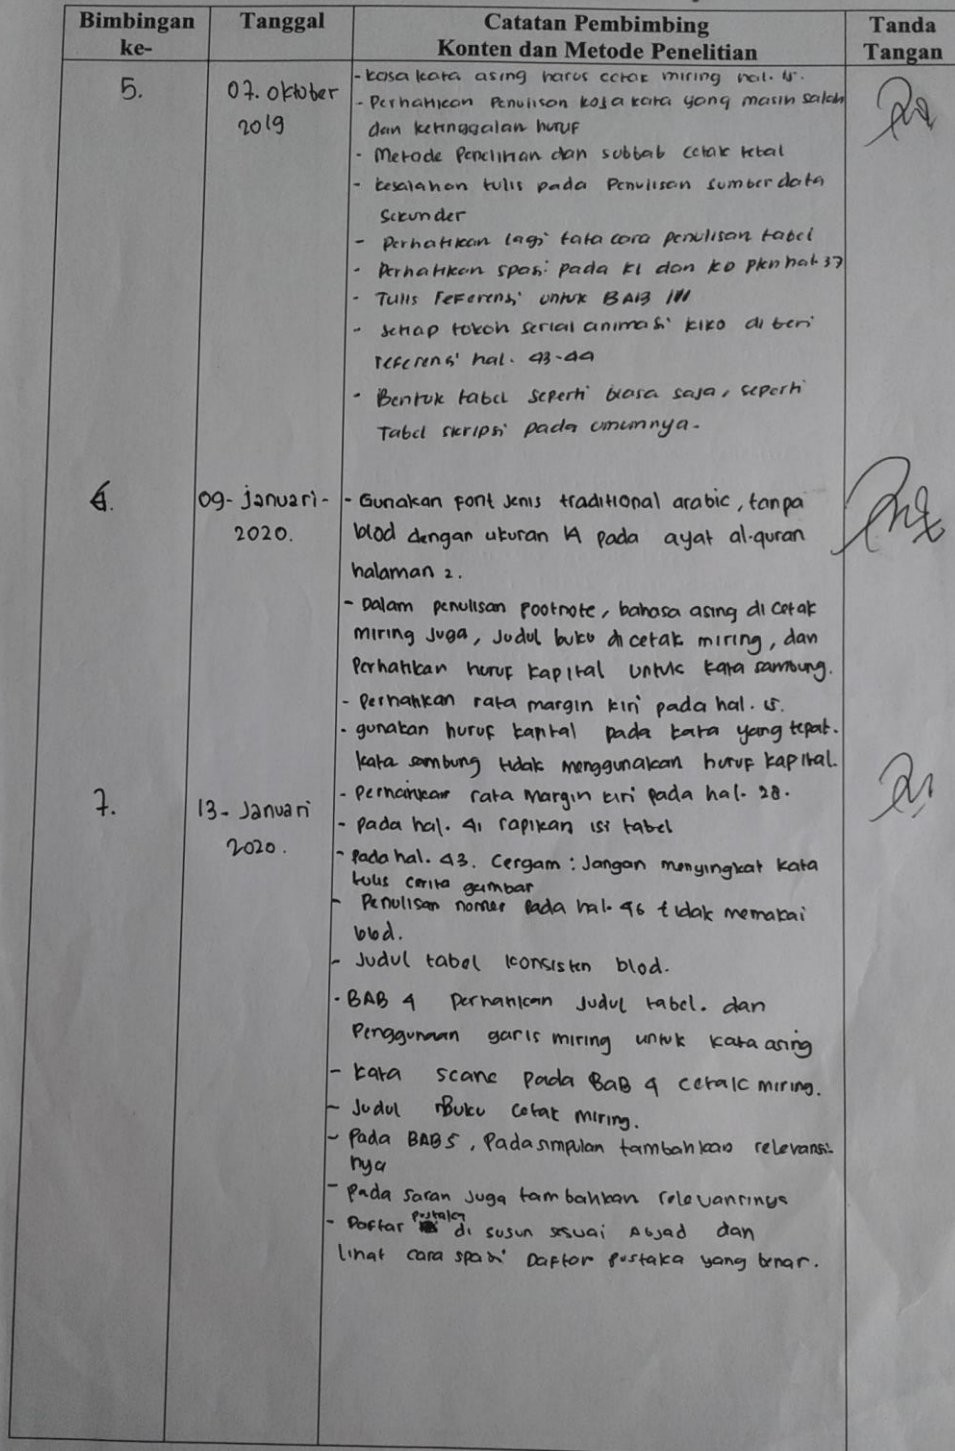 Bimbingan ke-
Tanggal
Catatan Pembimbing
Konten dan Metode Penelitian
Tanda Tangan
5.
07. oktober
2019
- kosa kata asing harus cetak miring hal. 15.
- Perhatikan Penulisan kosa kata yang masih salah
dan ketinggalan huruf
- Metode Penelitian dan subbab cetak tebal
- kesalahan tulis pada Penulisan sumber data
Sekunder
- Perhatikan lagi tata cara penulisan tabel
- Perhatikan spasi pada KI dan KD pkn hal 37
- Tulis Referensi untuk BAB III
- setiap tokoh serial animasi kiko di beri
referensi hal. 43-44
- Bentuk tabel seperti biasa saja, seperti
Tabel skripsi pada umumnya.
6.
09- januari-
2020.
- Gunakan font jenis traditional arabic, tanpa
blod dengan ukuran 14 pada ayat al-quran
halaman 2.
- Dalam penulisan footnote, bahasa asing di cetak
miring juga, judul buku di cetak miring, dan
Perhatikan huruf kapital untuk kata sambung.
- perhatikan rata margin kiri pada hal. 15.
- gunakan huruf kapital pada kata yang tepat.
kata sambung tidak menggunakan huruf kapital.
7.
13- Januari
2020.
- perhatikan rata margin kiri pada hal. 28.
- pada hal. 41 rapikan isi tabel
- pada hal. 43. Cergam : Jangan menyingkat kata
tulis cerita gambar
- Penulisan nomer pada hal. 46 tidak memakai
blod.
- Judul tabel konsisten blod.
- BAB 4 perhatikan judul tabel. dan
Penggunaan garis miring untuk kata asing
- kata scane pada BaB 4 cetak miring.
- Judul Buku cetak miring.
- Pada BAB 5, Pada simpulan tambahkan relevansi-
nya
- pada saran juga tambahkan relevansinya
- Daftar pustaka di susun sesuai Abjad dan
lihat cara spasi Daftar Pustaka yang benar.